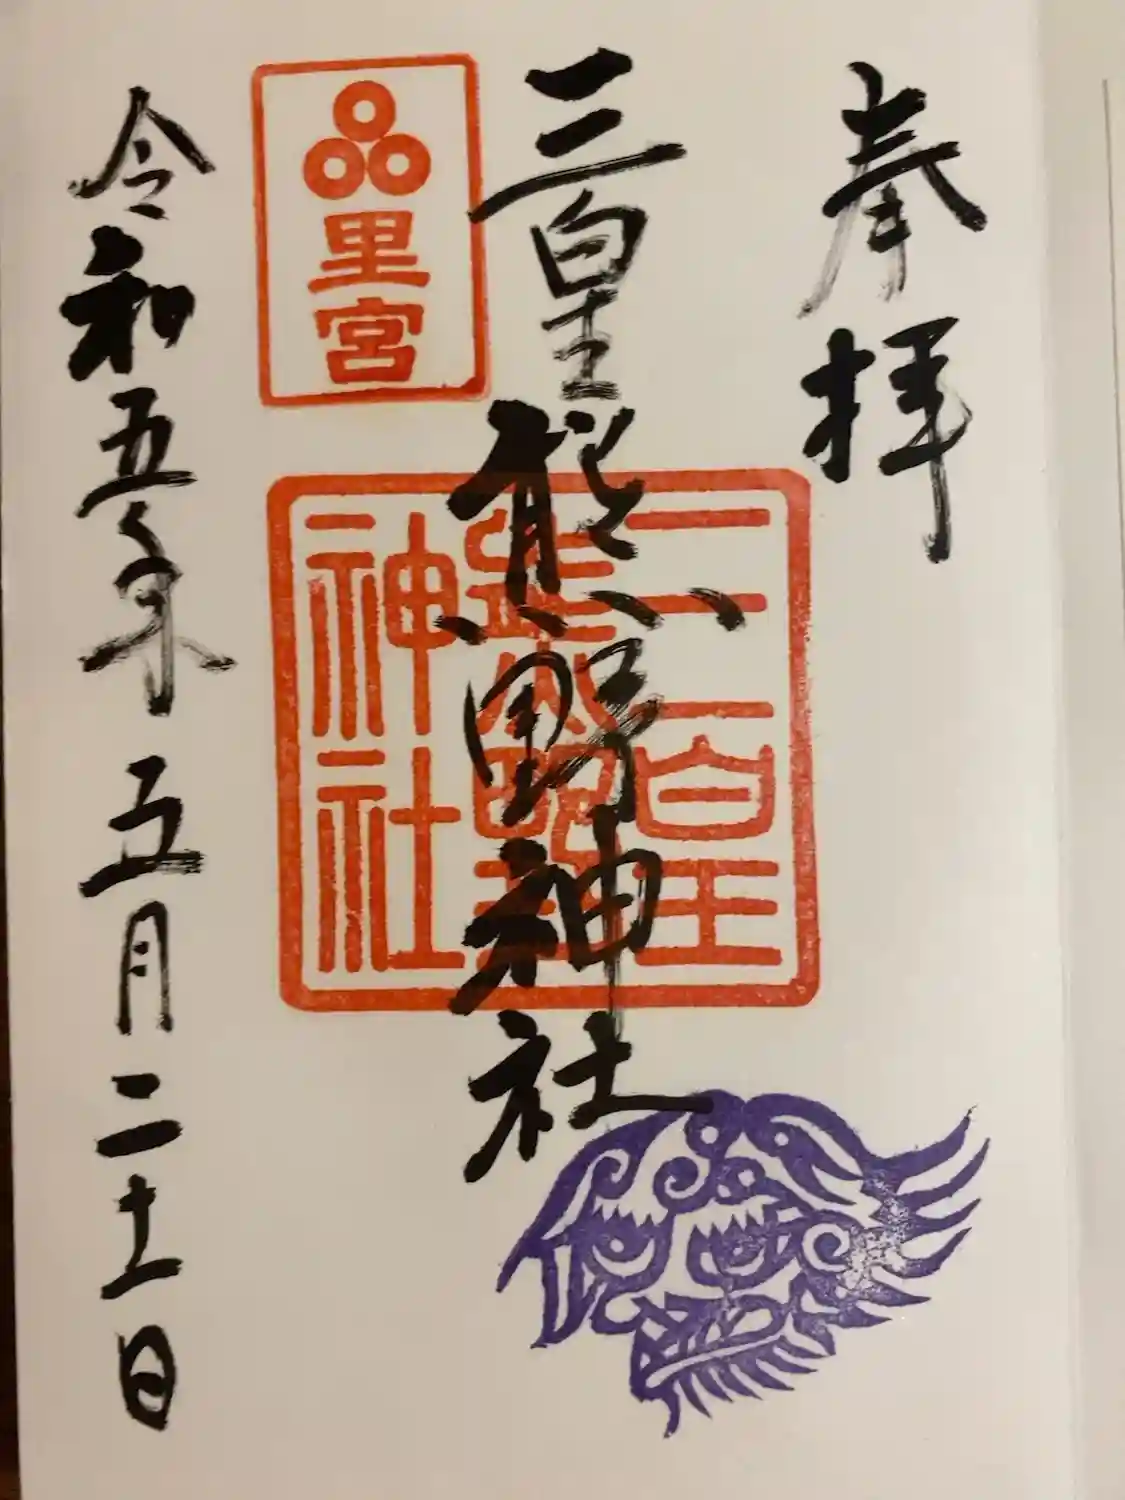 奉拝
三皇熊野神社
三皇
熊野
神社
里宮
令和五年五月二十一日